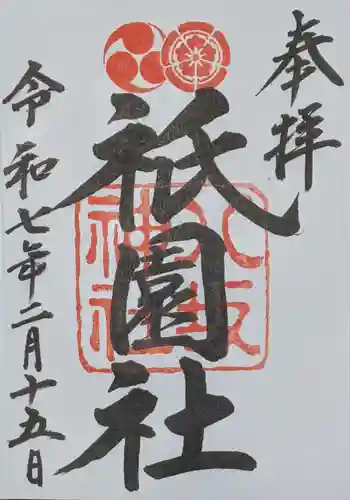 奉拝
祇園社
八坂
神社
令和七年二月十五日